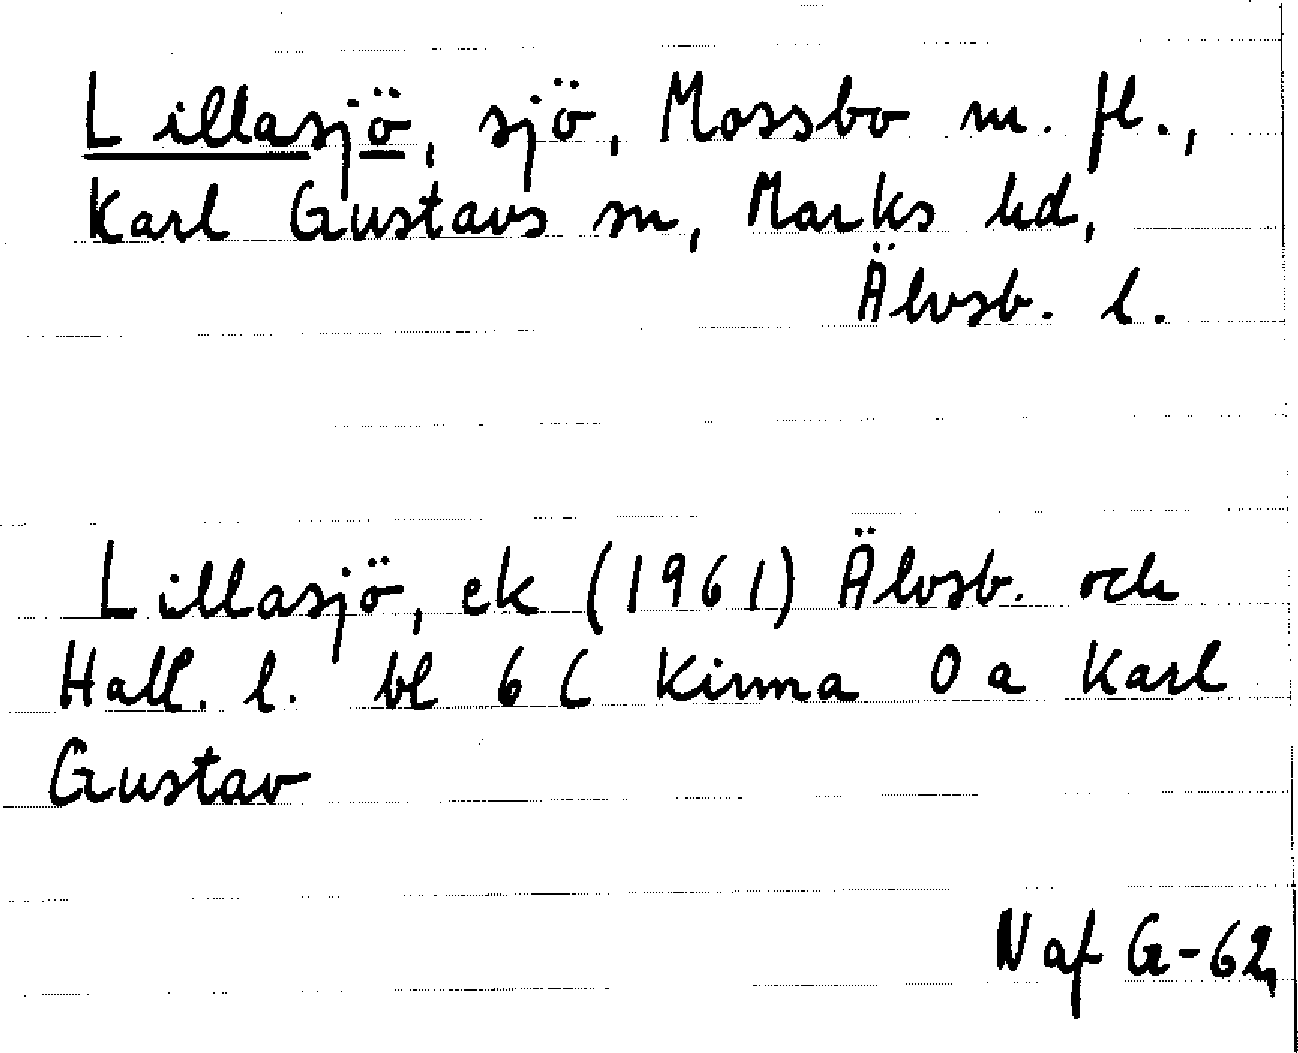 Lillasjö, sjö, Mossbo m. fl.,
Karl Gustavs sn, Marks hd,
Älvsb. l.
Lillasjö, ek (1961) Älvsb. och
Hall. l. bl 6 C Kinna 0 a Karl
Gustav
N af G-62